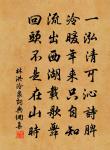 一泓清可沁詩脾
冷暖年來只自知
流出西湖載歌舞
回頭不是在山時
林洪冷泉亭詞典網書